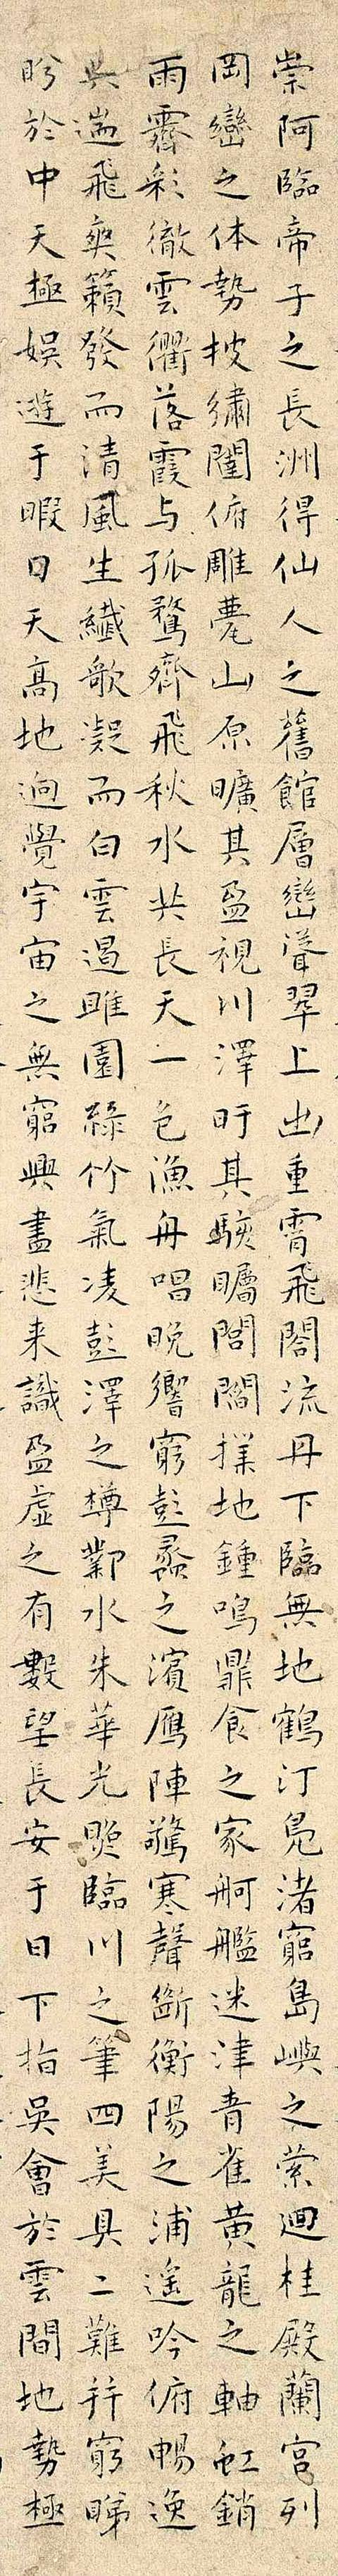 崇阿臨帝子之長洲得仙人之舊館層巒聳翠上出重霄飛閣流丹下臨無地鶴汀凫渚窮島嶼之縈迴桂殿蘭宮列
岡巒之体勢披繡闥俯雕甍山原曠其盈視川澤盱其駭矚閭閻撲地鍾鳴鼎食之家舸艦迷津青雀黃龍之軸虹銷
雨霽彩徹雲衢落霞与孤鶩齊飛秋水共長天一色漁舟唱晚響窮彭蠡之濱鴈陣驚寒聲斷衡陽之浦遙吟俯暢逸
興遄飛爽籟發而清風生纖歌凝而白雲遏睢園綠竹氣凌彭澤之樽鄴水朱華光照臨川之筆四美具二難并窮睇
眄於中天極娛遊于暇日天高地迥覺宇宙之無窮興盡悲来識盈虛之有數望長安于日下指吳會於雲間地勢極